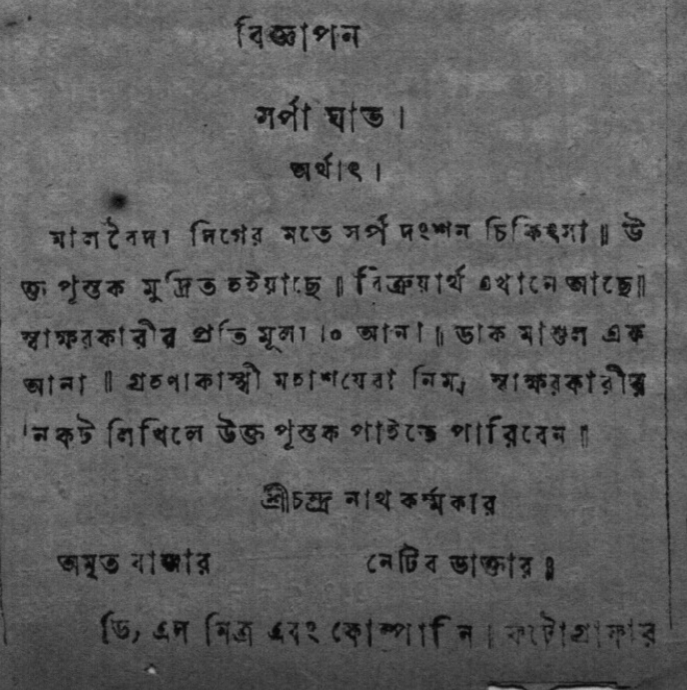 বিজ্ঞাপন
সর্পা ঘাত ।
অর্থাৎ ।
মালবৈদ্য দিগের মতে সর্প দংশন চিকিৎসা ॥ উ
ক্ত পুস্তক মুদ্রিত হইয়াছে ॥ বিক্রয়ার্থ এখানে আছে ॥
স্বাক্ষরকারীর প্রতি মূল্য ।০ আনা ॥ ডাক মাশুল এক
আনা ॥ গ্রহণাকাঙ্ক্ষী মহাশয়েরা নিম্ন স্বাক্ষরকারীর
নিকট লিখিলে উক্ত পুস্তক পাইতে পারিবেন ॥
শ্রীচন্দ্র নাথ কর্ম্মকার
অমৃত বাজার নেটিব ডাক্তার ॥
ডি, এল মিত্র এবং কোম্পানি । ফটোগ্রাফার